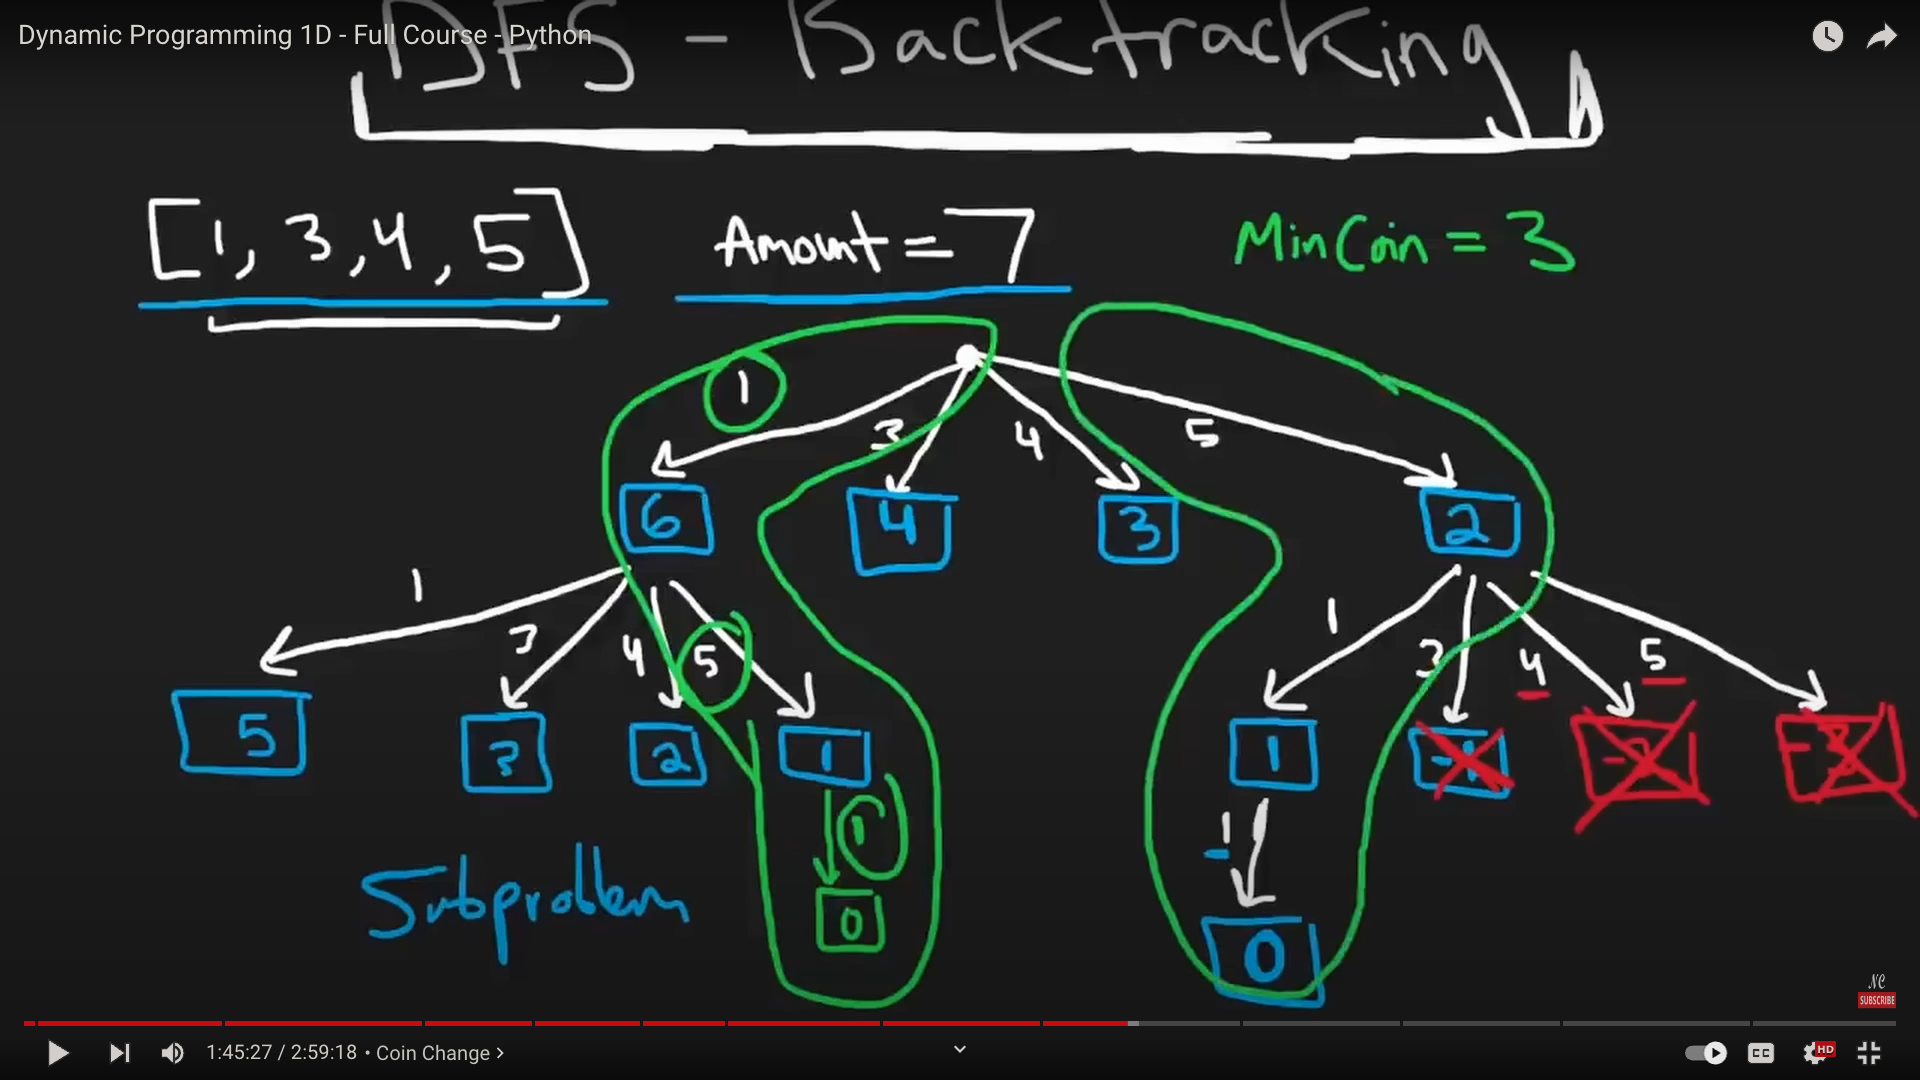 Dynamic Programming 1D - Full Course - Python
DFS - Backtracking
[1, 3, 4, 5] Amount = 7 MinCoin = 3
1 3 4 5
6 4 3 2
1 3 4 5 1 3 4 5
5 3 2 1 1 -1 -2 -3
1 -1
Subproblem 0 0
NC
SUBSCRIBE
1:45:27 / 2:59:18 • Coin Change >
CC HD